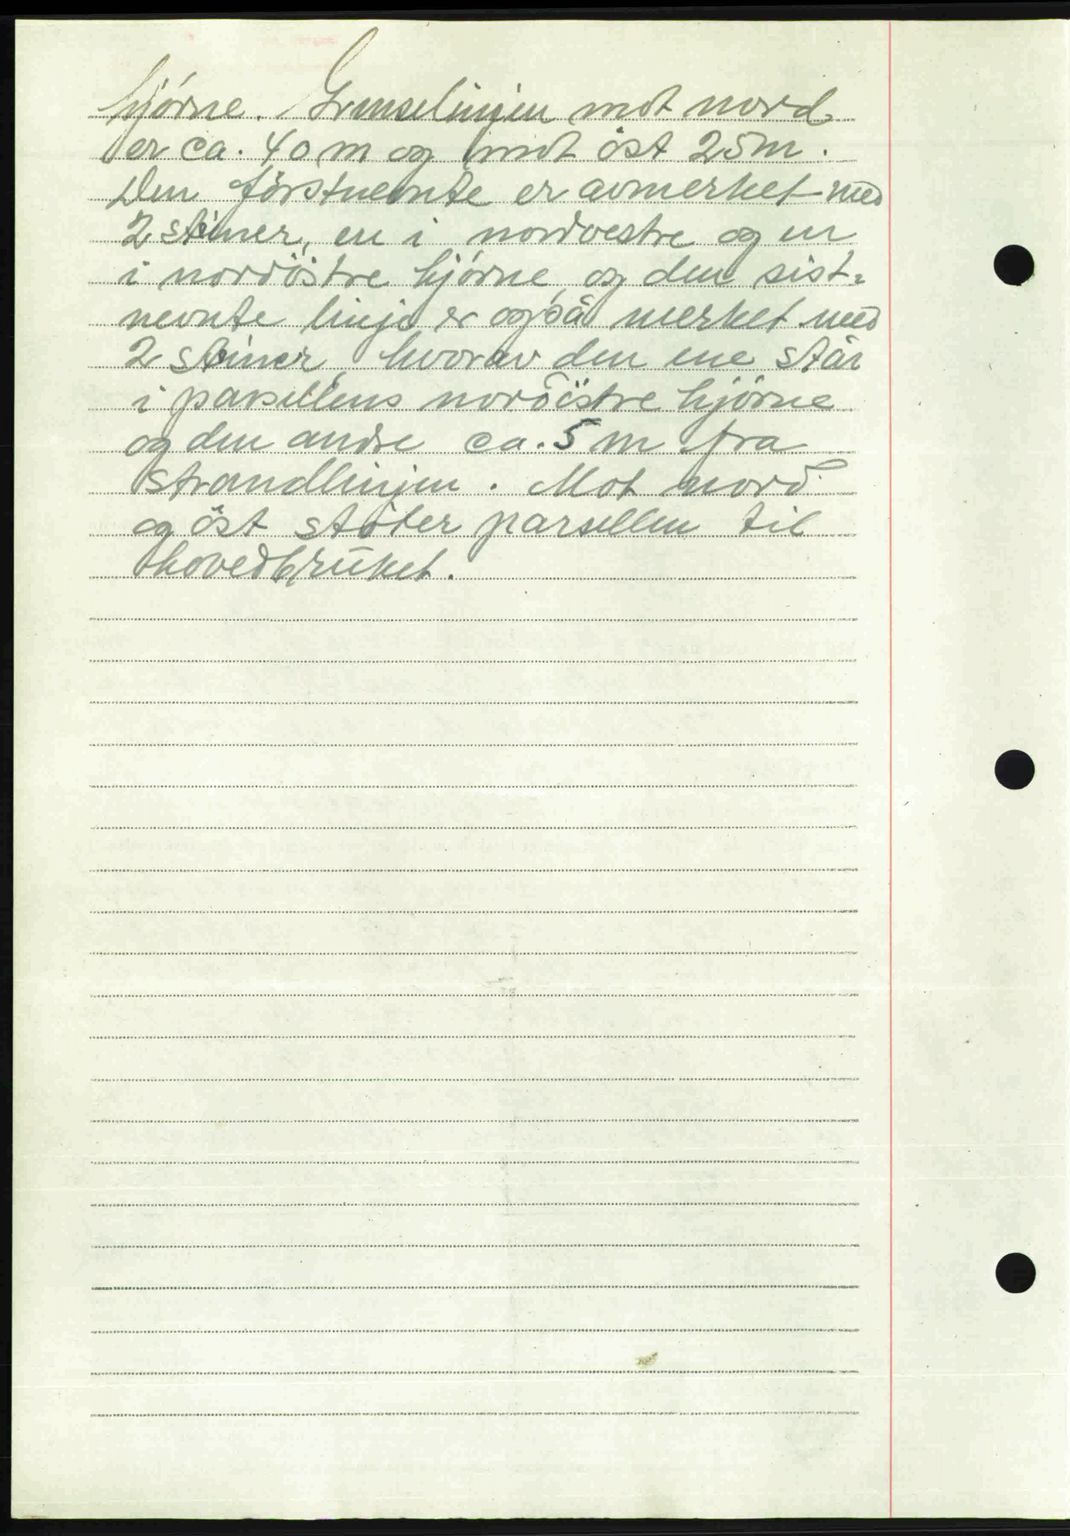 hjørne. Grenselinjen mot nord
er ca. 40 m og mot öst 25m.
Den förstnevnte er avmerket med
2 steiner, en i nordvestre og en
i nordöstre hjørne, og den sist=
nevnte linje er også merket med
2 steiner, hvorav den ene står
i parsellens nordöstre hjørne
og den andre ca. 5 m fra
strandlinjen. Mot nord
og öst stöter parsellen til
hovedbrŭket.